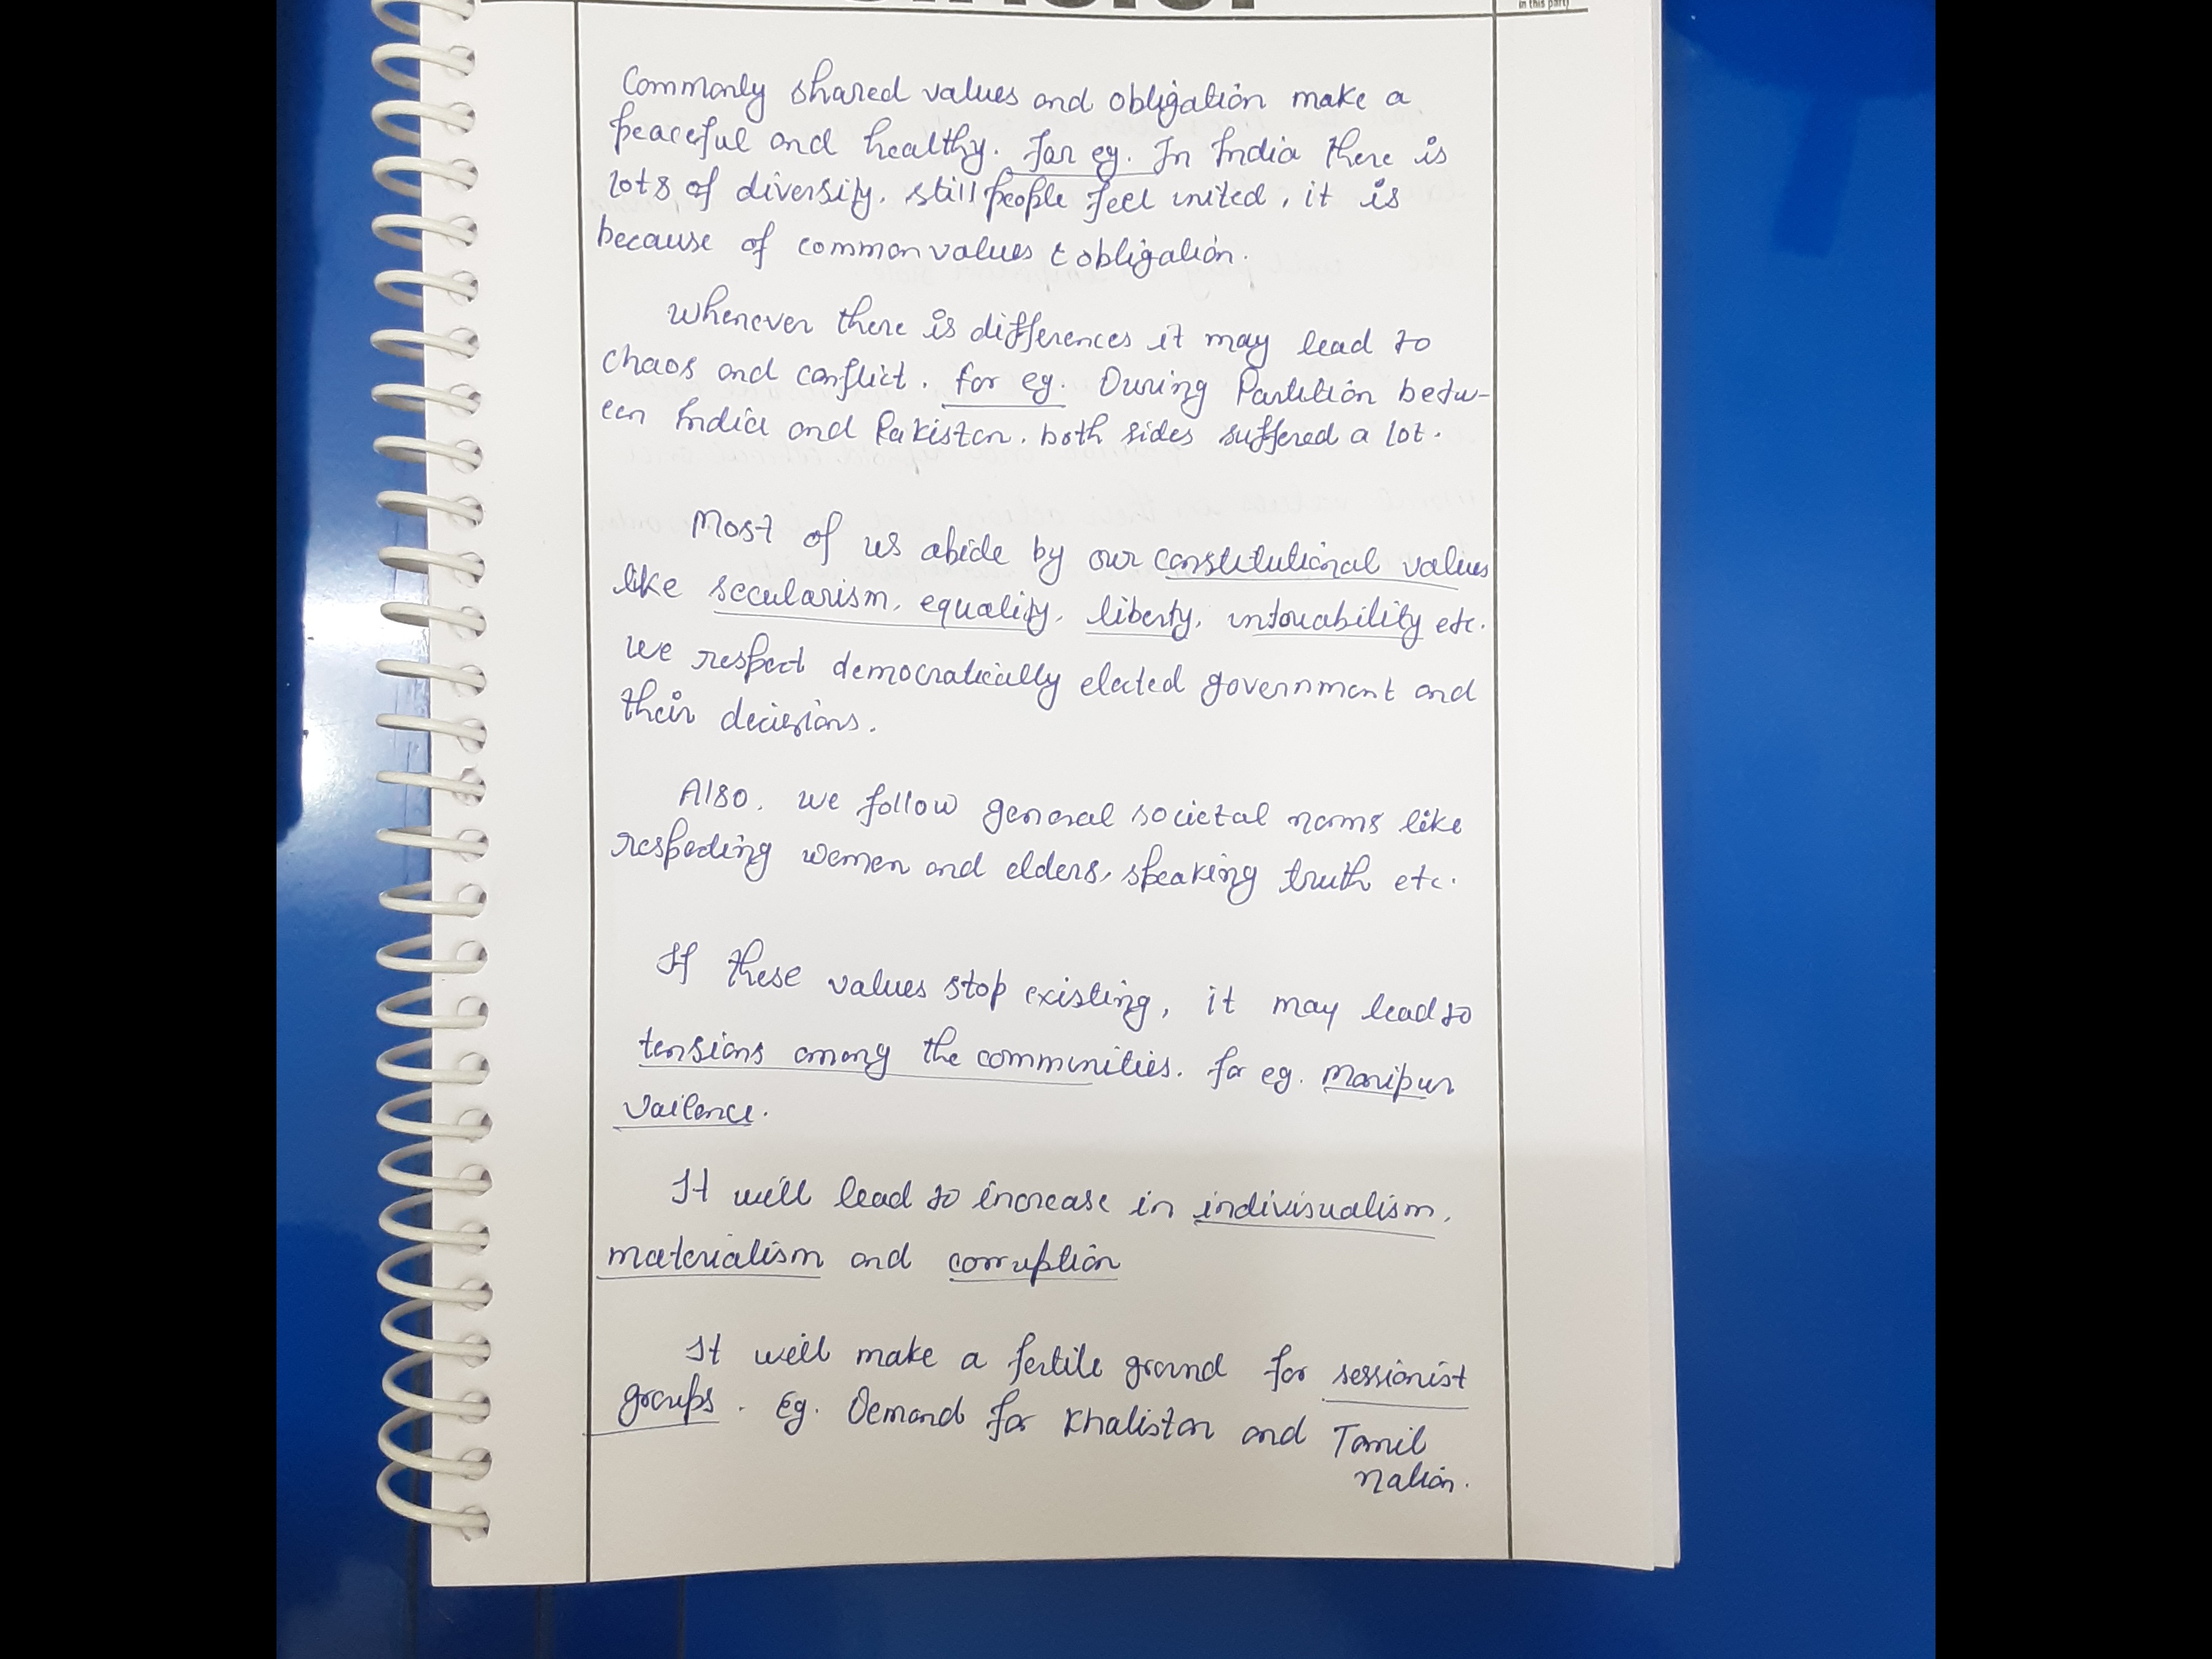 in this part)
Commonly shared values and obligation make a
peaceful and healthy. For eg. In India there is
lots of diversity, still people feel united, it is
because of common values & obligation.
Whenever there is differences it may lead to
chaos and conflict. for eg. During Partition betw-
een India and Pakistan, both sides suffered a lot.
Most of us abide by our constitutional values
like secularism, equality, liberty, untouability etc.
we respect democratically elected government and
their decisions.
Also, we follow general societal norms like
respecting women and elders, speaking truth etc.
If these values stop existing, it may lead to
tensions among the communities. for eg. Manipur
vailence.
It will lead to increase in indivisualism,
materialism and corruption
It will make a fertile ground for sessionist
groups. Eg. Demand for Khalistan and Tamil
nation.